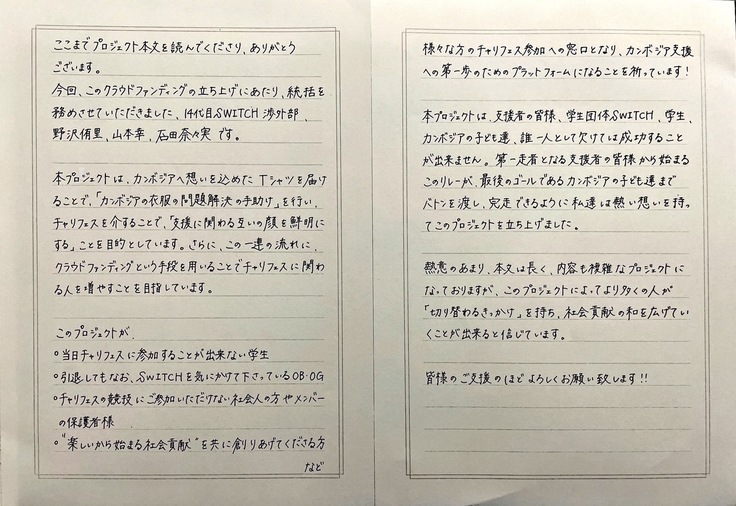 ここまでプロジェクト本文を読んでくださり、ありがとう
ございます。
今回、このクラウドファンディングの立ち上げにあたり、統括を
務めさせていただきました、14代目SWITCH渉外部、
野沢侑里、山本幸、石田奈々実です。
本プロジェクトは、カンボジアへ想いを込めたTシャツを届け
ることで、「カンボジアの衣服の問題解決の手助け」を行い、
チャリフェスを介することで、「支援に関わる互いの顔を鮮明に
する」ことを目的としています。さらに、この一連の流れに、
クラウドファンディングという手段を用いることでチャリフェスに関わ
る人を増やすことを目指しています。
このプロジェクトが、
○当日チャリフェスに参加することが出来ない学生
○引退してもなお、SWITCHを気にかけて下さっているOB・OG
○チャリフェスの競技にご参加いただけない社会人の方やメンバー
の保護者様
○"楽しいから始まる社会貢献"を共に創りあげてくださる方
など
様々な方のチャリフェス参加への窓口となり、カンボジア支援
への第一歩のためのプラットフォームになることを祈っています!
本プロジェクトは、支援者の皆様、学生団体SWITCH、学生、
カンボジアの子ども達、誰一人として欠けては成功すること
が出来ません。第一走者となる支援者の皆様から始まる
このリレーが、最後のゴールであるカンボジアの子ども達まで
バトンを渡し、完走できるように私達は熱い想いを持っ
てこのプロジェクトを立ち上げました。
熱意のあまり、本文は長く、内容も複雑なプロジェクトに
なっておりますが、このプロジェクトによってより多くの人が
「切り替わるきっかけ」を持ち、社会貢献の和を広げてい
くことが出来ると信じています。
皆様のご支援のほどよろしくお願い致します!!